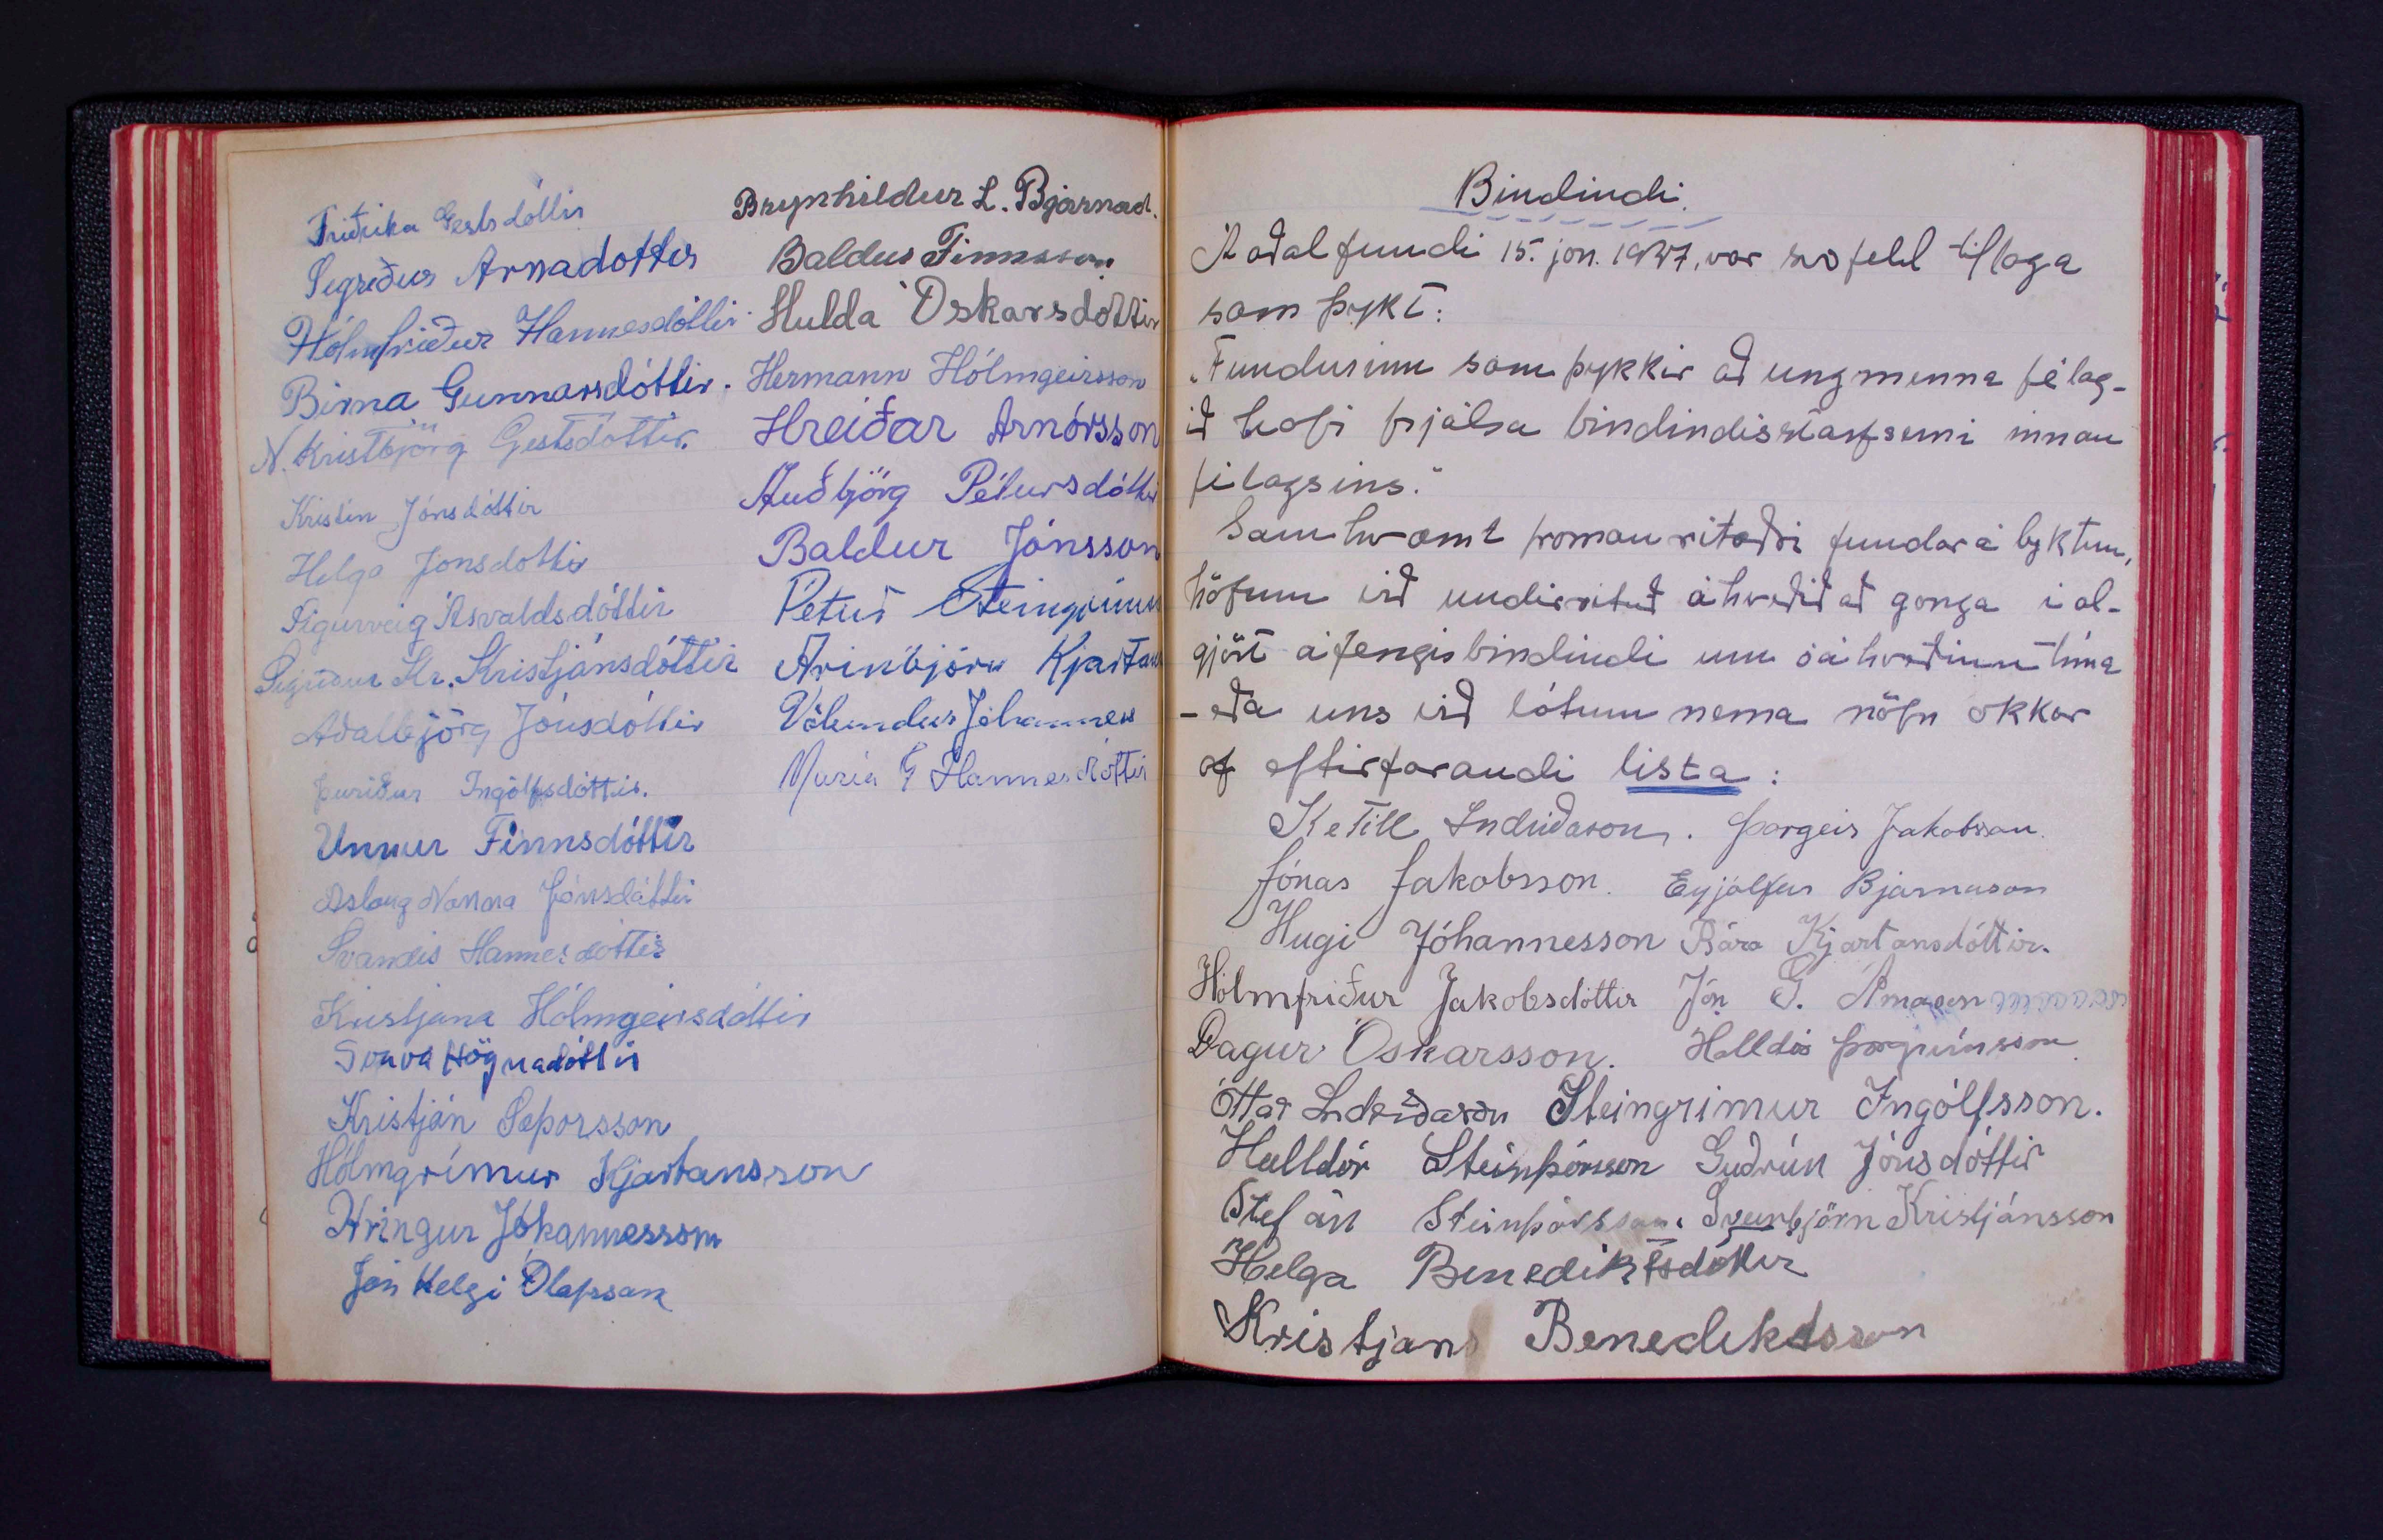 Friðrika Gestsdóttir
Sigríður Arnadóttir
Hólmfríður Hannesdóttir
Birna Gunnarsdóttir.
N. Kristbjörg Gestsdóttir.
Kristín Jónsdóttir
Helga Jónsdóttir
Sigurveig Ásvaldsdóttir
Sigríður Kr. Kristjánsdóttir
Aðalbjörg Jónsdóttir
Þuríður Ingólfsdóttir.
Unnur Finnsdóttir
Aslaug Nanna Jónsdóttir
Svandís Hannesdóttir
Kristjana Hólmgeirsdóttir
Svava Högnadóttir
Kristján Sæþórsson
Hólmgrímur Kjartansson
Hringur Jóhannesson
Jón Helgi Ólafsson
Brynhildur L. Bjarnad.
Baldur Finnsson
Hulda Óskarsdóttir
Hermann Hólmgeirsson
Hreiðar Arnórsson
Auðbjörg Pétursdóttir
Baldur Jónsson
Petur Steingrímu
Arinbjörn Kjartan
Völundur Jóhanness
María G Hannesdóttir
Bindindi.
Á aðalfundi 15. jan. 1937, var svofeld tillaga
samþykt:
"Fundurinn samþykkir að ungmennafélag-
ið hafi frjálsa bindindisstarfsemi innan
félagsins."
Samkvæmt framanritaðri fundarályktun,
höfum við undirrituð ákveðið að ganga í al-
gjört áfengisbindindi um óákveðinn tíma
- eða uns við látum nema nöfn okkar
af eftirfarandi lista:
Ketill Indriðason. Þorgeir Jakobsson.
Jónas Jakobsson. Eyjólfur Bjarnason
Hugi Jóhannesson Bára Kjartansdóttir.
Hólmfríður Jakobsdóttir Jón G.
Dagur Óskarsson. Halldór Þorgrímsson
Óttar Indriðason Steingrímur Ingólfsson.
Halldór Steinþórsson Guðrún Jónsdóttir
Stefán Steinþórsson. Sveinbjörn Kristjánsson
Helga Benediktsdóttir
Kristján Benediktsson